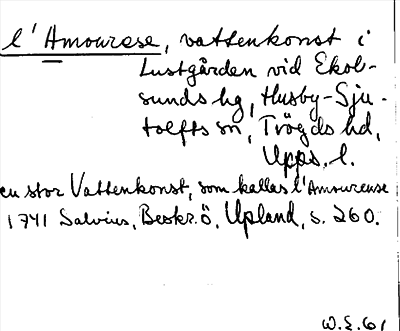 l'Amourese, vattenkonst i
Lustgården vid Ekol-
sunds hg, Husby-Sju-
tolfts sn, Trögds hd,
Upps. l.
en stor Vattenkonst, som kallas l'Amoureuse
1741 Salvius, Beskr. ö. Upland, s. 260.
W.E. 61